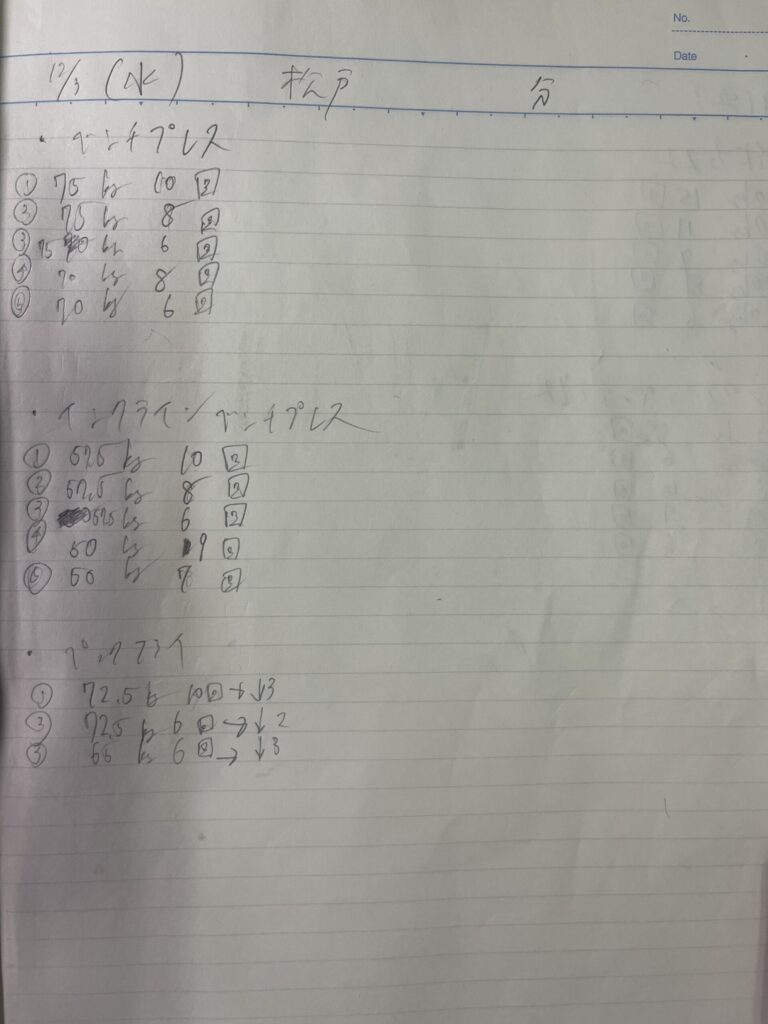 No.
Date
12/3 (水) 松戸
・ベンチプレス
① 75 kg 10 回
② 75 kg 8 回
③ 75 kg 6 回
④ 70 kg 8 回
⑤ 70 kg 6 回
・インクラインベンチプレス
① 52.5 kg 10 回
② 52.5 kg 8 回
③ 52.5 kg 6 回
④ 50 kg 9 回
⑤ 50 kg 7 回
・ペックフライ
① 72.5 kg 10 回 → ↓3
② 72.5 kg 6 回 → ↓2
③ 66 kg 6 回 → ↓3